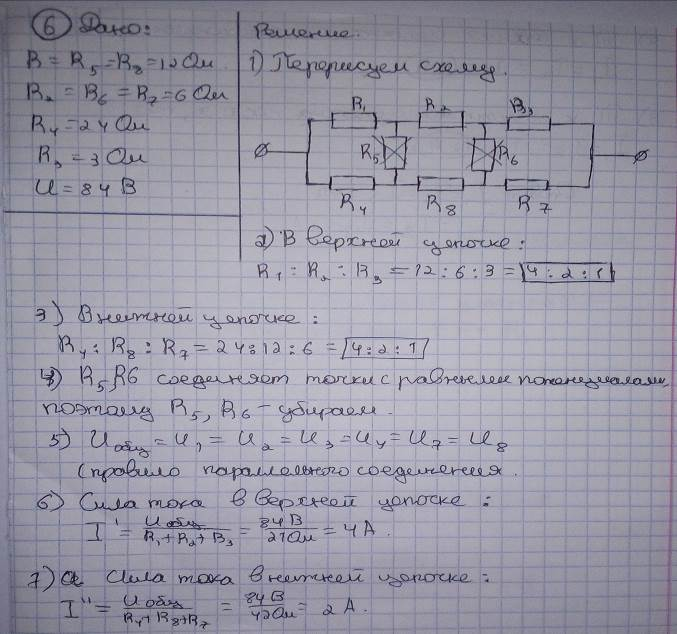 6 Дано:
R = R5 = R8 = 12 Ом
R2 = R6 = R7 = 6 Ом
R4 = 24 Ом
R3 = 3 Ом
U = 84 В
Решение.
1) Перерисуем схему.
R1 R2 R3
R5 R6
R4 R8 R7
2) В верхней цепочке:
R1 : R2 : R3 = 12 : 6 : 3 = 4 : 2 : 1
3) В нижней цепочке:
R4 : R8 : R7 = 24 : 12 : 6 = 4 : 2 : 1
4) R5, R6 соединяет точки с равными потенциалами,
поэтому R5, R6 – убираем.
5) Uобщ = U1 = U2 = U3 = U4 = U7 = U8
(правило параллельного соединения.
6) Сила тока в верхней цепочке:
I' = Uобщ / R1 + R2 + R3 = 84 В / 21 Ом = 4 А.
7) Сила тока в нижней цепочке:
I'' = Uобщ / R4 + R8 + R7 = 84 В / 42 Ом = 2 А.